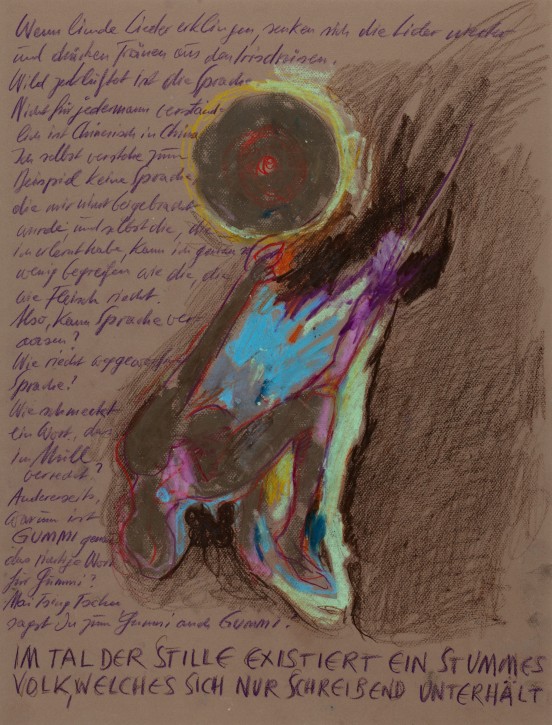 Wenn linde Lieder erklingen, senken sich die Lider wieder
und drücken Tränen aus den Irisdrüsen.
Wild zerklüftet ist die Sprache
Nicht für jedermann verständ-
lich ist Chinesisch in China
Ich selbst verstehe zum
Beispiel keine Sprache
die mir nicht beigebracht
wurde und selbst die, die
ich erlernt habe, kann ich genau so
wenig begreifen wie die, die
wie Fleisch riecht.
Also, kann Sprache ver-
wesen?
Wie riecht weggeworfene
Sprache?
Wie schmeckt
ein Wort, das
im Müll
verreckt?
Andererseits,
warum ist
GUMMI
das Wort
für Gummi?
sagst Du zum Gummi auch GUMMI.
IM TAL DER STILLE EXISTIERT EIN STUMMES
VOLK, WELCHES SICH NUR SCHREIBEND UNTERHÄLT